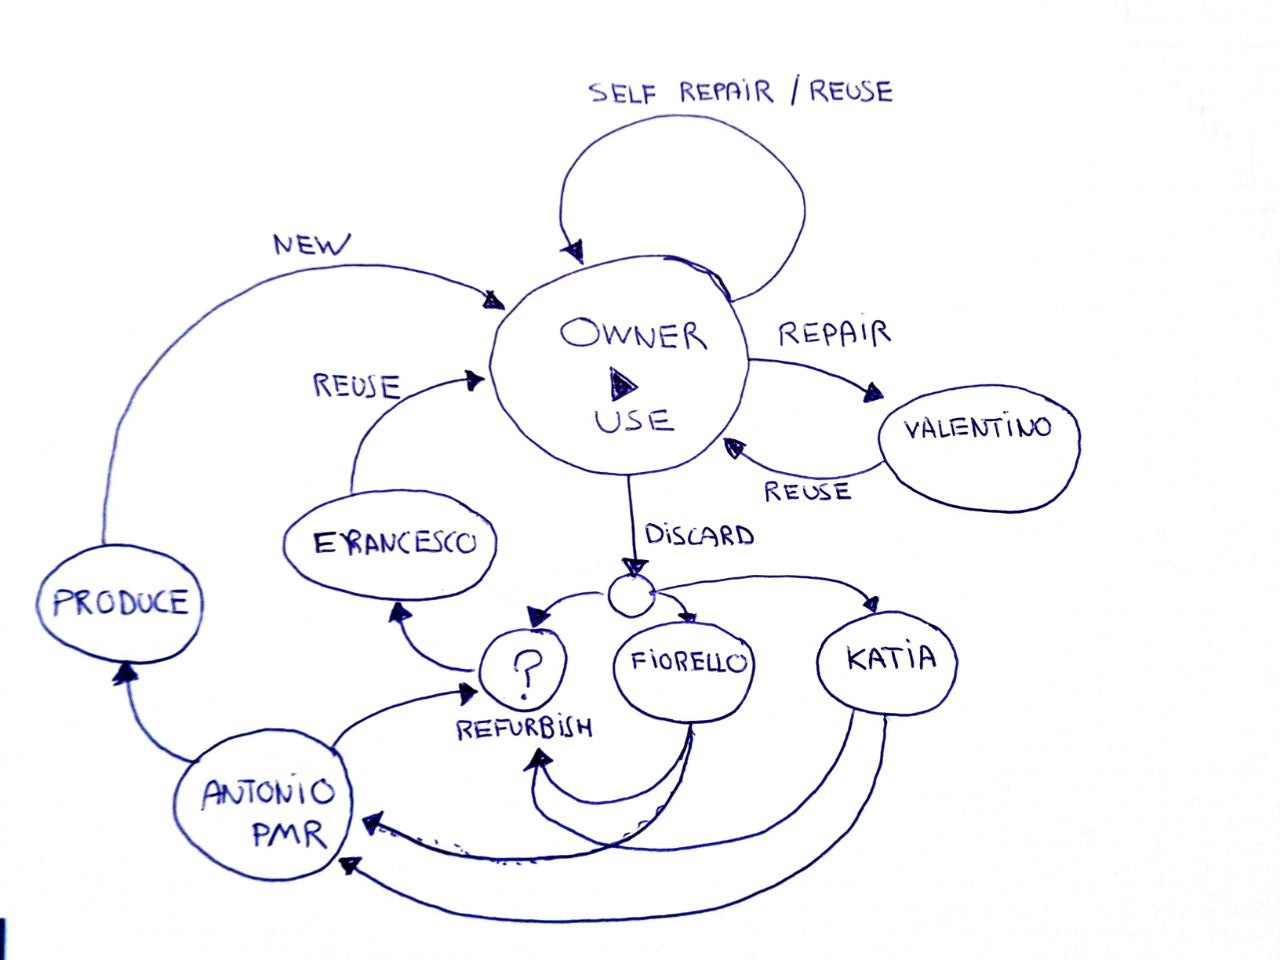 SELF REPAIR / REUSE
NEW
OWNER
USE
REPAIR
REUSE
VALENTINO
REUSE
DISCARD
FRANCESCO
PRODUCE
?
REFURBISH
FIORELLO
KATIA
ANTONIO
PMR